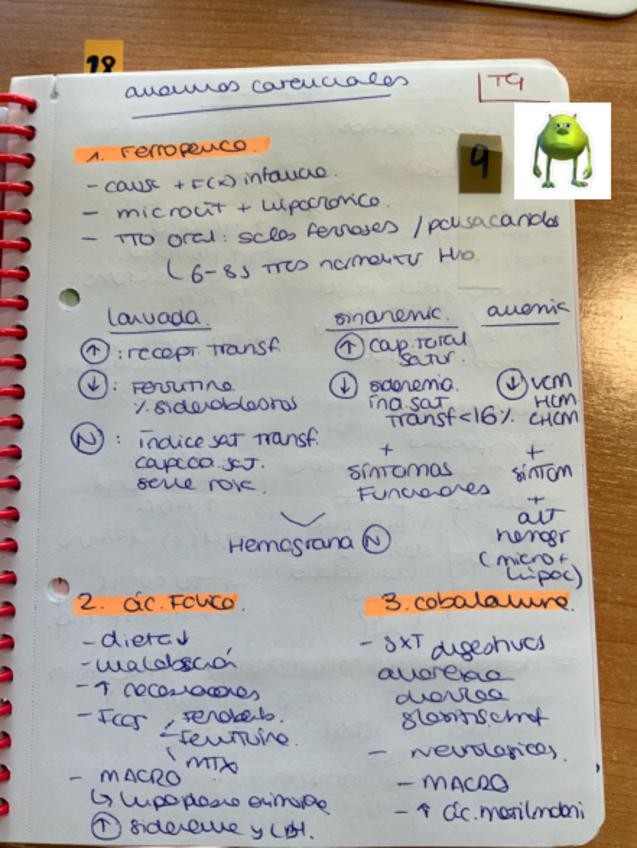 18
anemias carenciales
T9
9
1. Ferropenica.
- causa + F(x) infancia.
- microcit + hipocrómica.
- TTO oral: sales ferrosas / polisacaridos
6-8s tras normalizar Hb.
larvada.
↑ : recept. transf.
↓ : Ferritina
% sideroblastos
N : índice sat transf.
capac. sat.
serie roja.
sinanemic.
↑ cap. total
satur.
↓ sideremia.
ind. sat
transf < 16%
+
síntomas
Funcionales
anemic
↓ VCM
HCM
CHCM
+
síntom
+
alt
hemogr
(micro +
hipoc)
Hemograma N
2. ác. Fólico.
- dieta ↓
- malabsció
- ↑ necesidades
- FCOS Fenobarb.
Fenitoína.
MTX
- MACRO
↳ hipoplasia eritroide
↑ sideremia y LDH.
3. cobalamina.
- SXT digestivos
anorexia
diarrea
- neurologicos.
- MACRO
- ↑ ác. metilmaloni